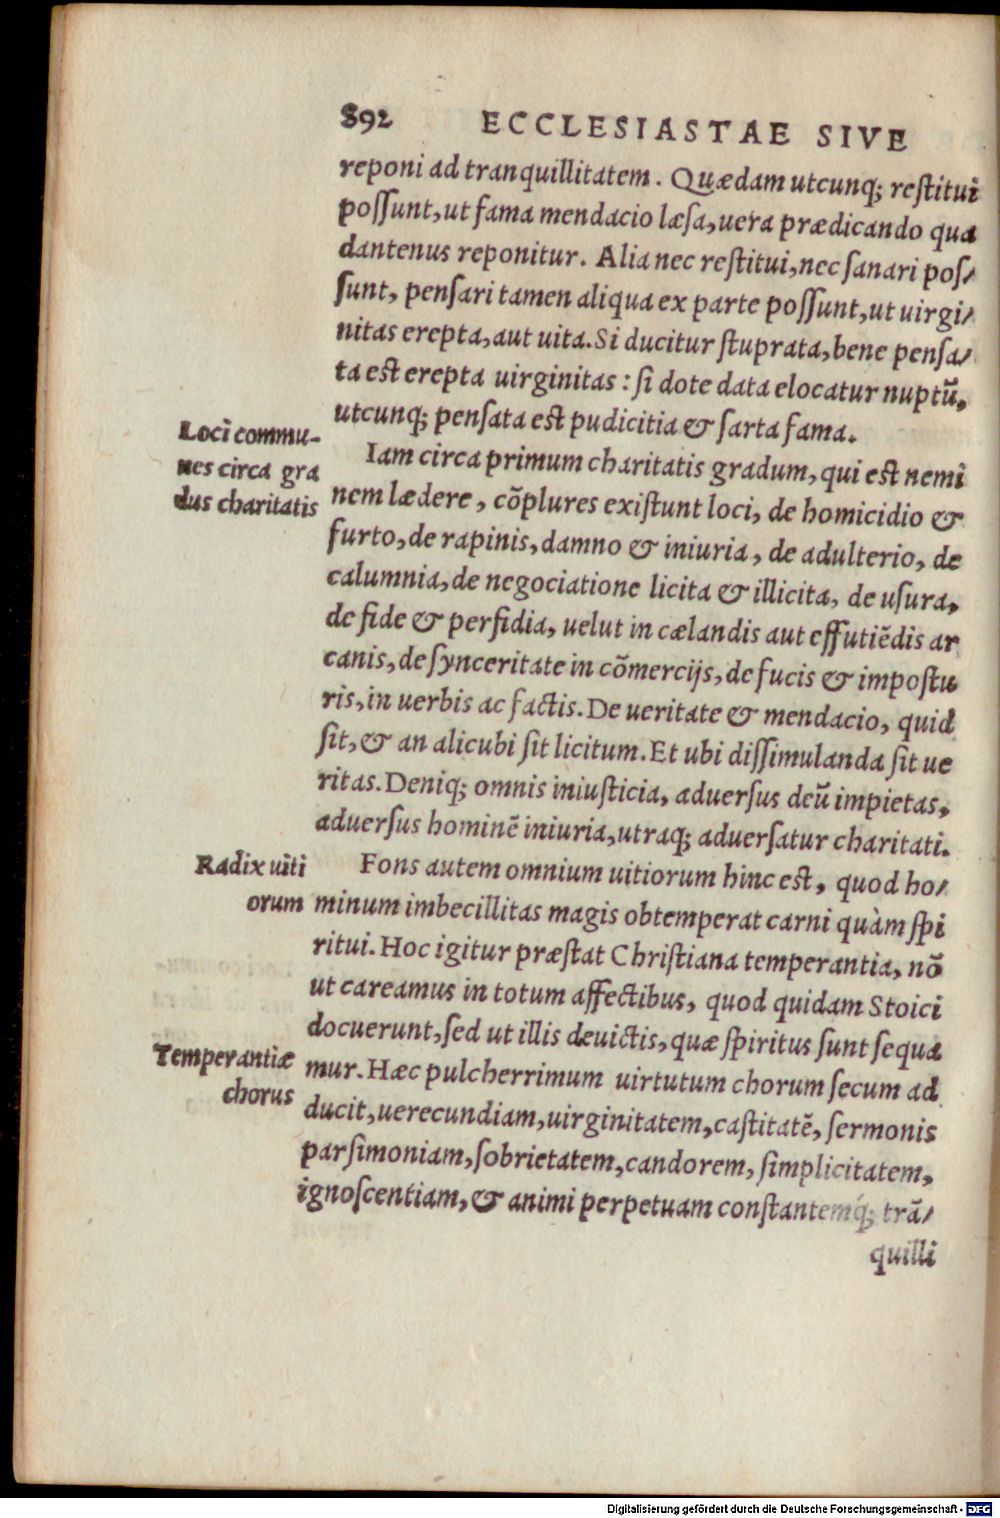 892 ECCLESIASTAE SIVE
reponi ad tranquillitatem. Quædam utcunq; reſtitui
poſſunt, ut fama mendacio læſa, uera prædicando qua
dantenus reponitur. Alia nec reſtitui, nec ſanari poſ/
ſunt, penſari tamen aliqua ex parte poſſunt, ut uirgi/
nitas erepta, aut uita. Si ducitur ſtuprata, bene penſa/
ta est erepta uirginitas: ſi dote data elocatur nuptū,
utcunq; penſata est pudicitia & ſarta fama.
Loci commu-
nes circa gra
dus charitatis
Iam circa primum charitatis gradum, qui est nemi
nem lædere, cōplures exiſtunt loci, de homicidio &
furto, de rapinis, damno & iniuria, de adulterio, de
calumnia, de negociatione licita & illicita, de uſura,
de fide & perfidia, uelut in cælandis aut effutiēdis ar
canis, de ſynceritate in cōmercijs, de fucis & impoſtu
ris, in uerbis ac factis. De ueritate & mendacio, quid
ſit, & an alicubi ſit licitum. Et ubi diſſimulanda ſit ue
ritas. Deniq; omnis iniuſticia, aduerſus deū impietas,
aduerſus hominē iniuria, utraq; aduerſatur charitati.
Radix uiti
orum
Fons autem omnium uitiorum hinc est, quod ho/
minum imbecillitas magis obtemperat carni quàm ſpi
ritui. Hoc igitur præſtat Chriſtiana temperantia, nō
ut careamus in totum affectibus, quod quidam Stoici
docuerunt, ſed ut illis deuictis, quæ ſpiritus ſunt ſequa
Temperantiæ
chorus
mur. Hæc pulcherrimum uirtutum chorum ſecum ad
ducit, uerecundiam, uirginitatem, caſtitatē, ſermonis
parſimoniam, ſobrietatem, candorem, ſimplicitatem,
ignoſcentiam, & animi perpetuam conſtantemq́; trā/
quilli
Digitalisierung gefördert durch die Deutsche Forschungsgemeinschaft - DFG